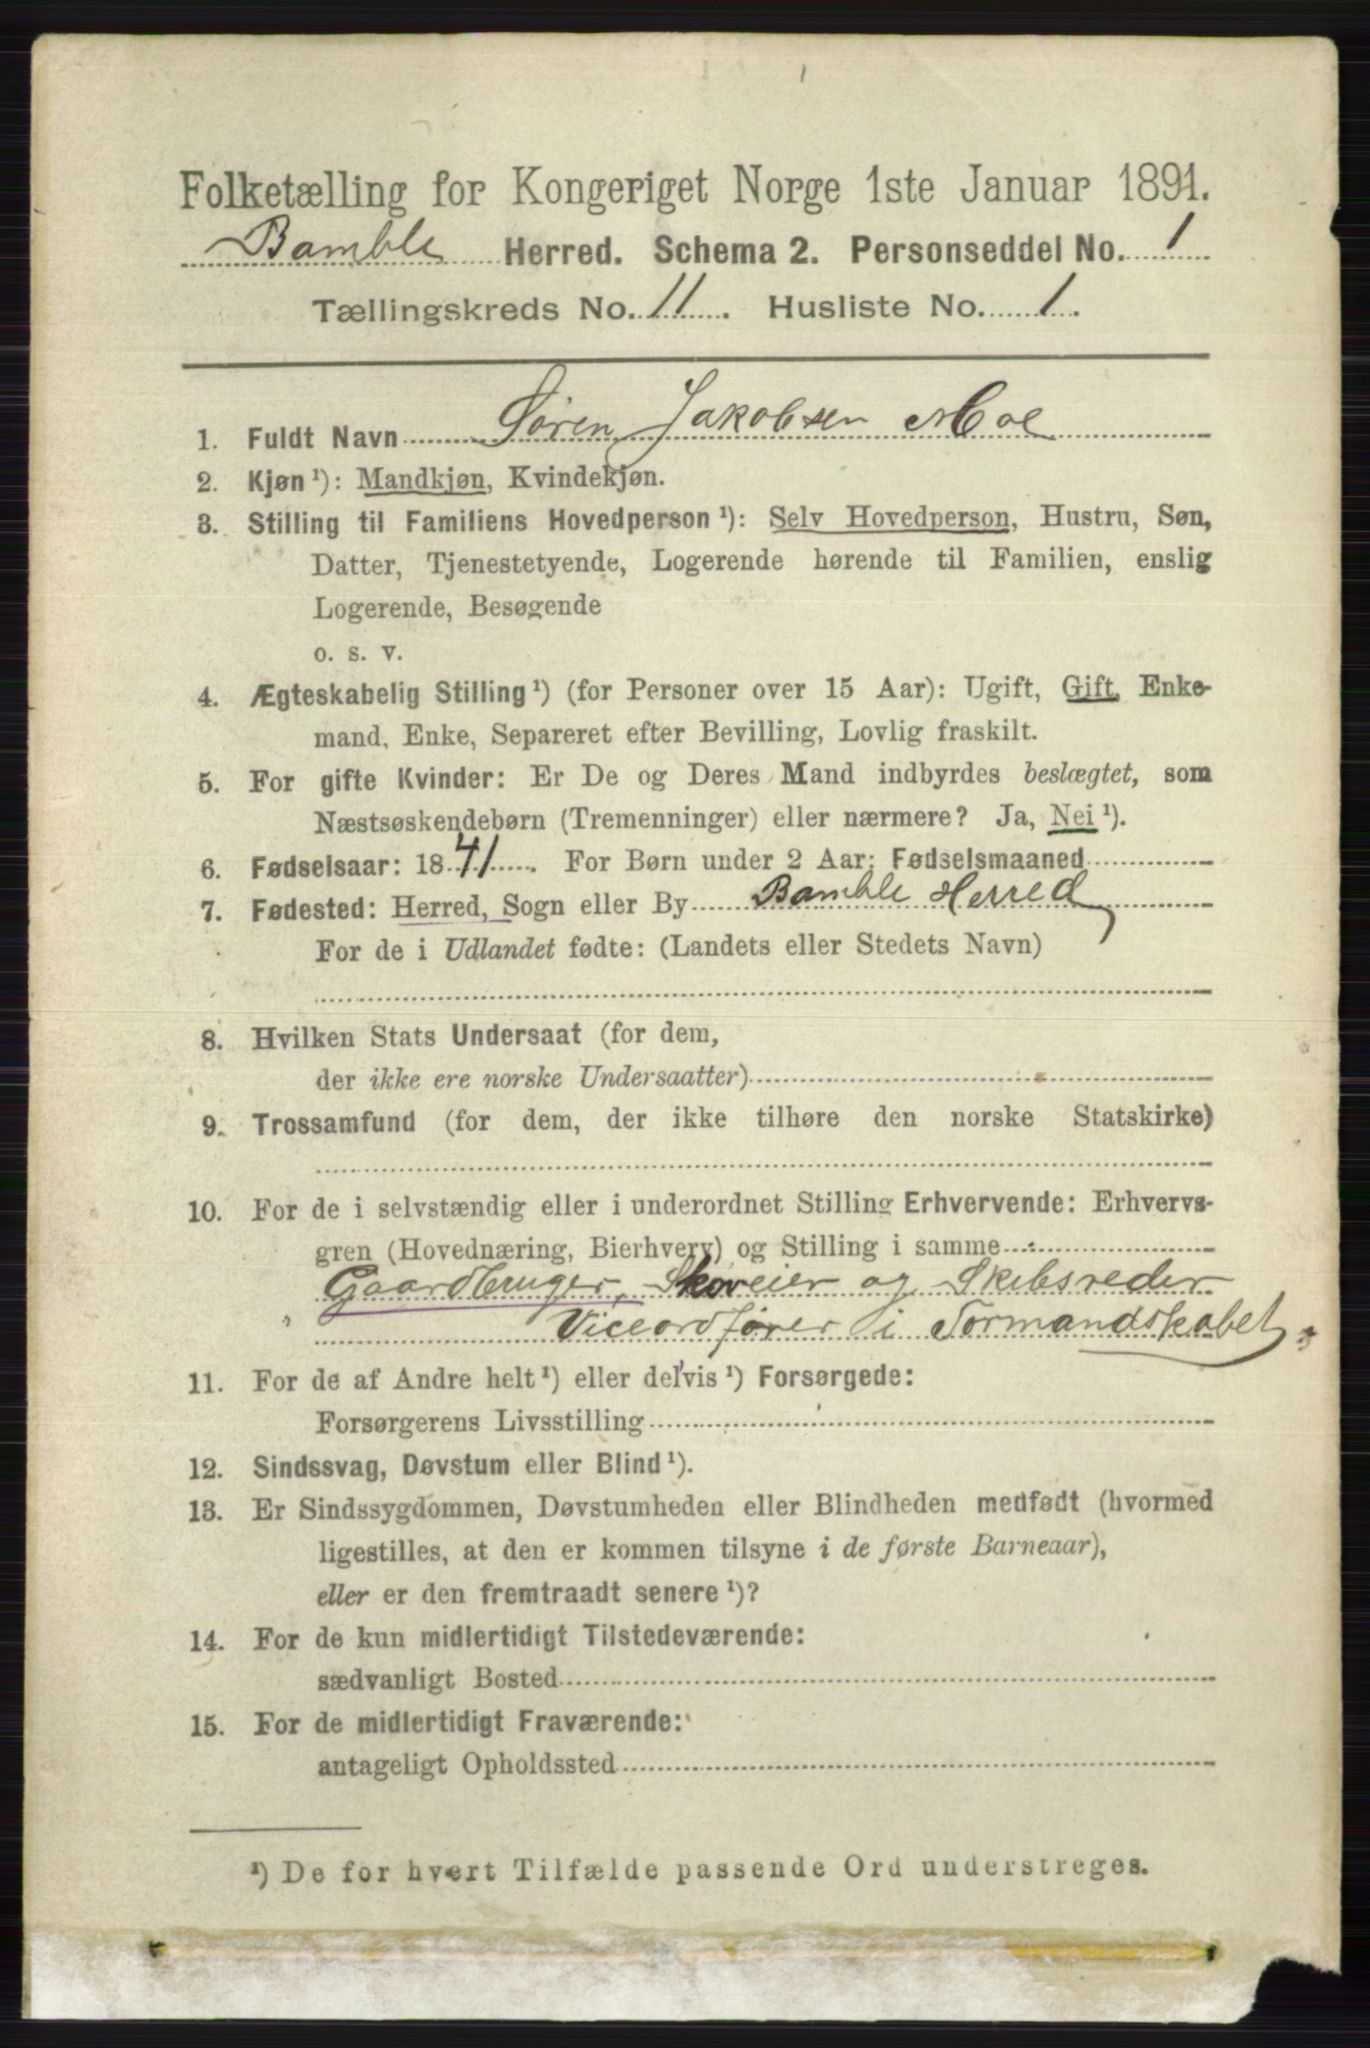 Folketælling for Kongeriget Norge 1ste Januar 1891.
Bamble Herred. Schema 2. Personseddel No. 1
Tællingskreds No. 11. Husliste No. 1.
1. Fuldt Navn Søren Jakobsen Moe
2. Kjøn ¹): Mandkjøn, Kvindekjøn.
3. Stilling til Familiens Hovedperson ¹): Selv Hovedperson, Hustru, Søn,
Datter, Tjenestetyende, Logerende hørende til Familien, enslig
Logerende, Besøgende
o. s. v.
4. Ægteskabelig Stilling ¹) (for Personer over 15 Aar): Ugift, Gift, Enke-
mand, Enke, Separeret efter Bevilling, Lovlig fraskilt.
5. For gifte Kvinder: Er De og Deres Mand indbyrdes beslægtet, som
Næstsøskendebørn (Tremenninger) eller nærmere? Ja, Nei ¹).
6. Fødselsaar: 1841. For Børn under 2 Aar: Fødselsmaaned
7. Fødested: Herred, Sogn eller By Bamble Herred
For de i Udlandet fødte: (Landets eller Stedets Navn)
8. Hvilken Stats Undersaat (for dem,
der ikke ere norske Undersaatter)
9. Trossamfund (for dem, der ikke tilhøre den norske Statskirke)
10. For de i selvstændig eller i underordnet Stilling Erhvervende: Erhvervs-
gren (Hovednæring, Bierhverv) og Stilling i samme
Gaardbruger, Skoveier og Skibsreder
Viceordfører i Formandskabet
11. For de af Andre helt ¹) eller delvis ¹) Forsørgede:
Forsørgerens Livsstilling
12. Sindssvag, Døvstum eller Blind ¹).
13. Er Sindssygdommen, Døvstumheden eller Blindheden medfødt (hvormed
ligestilles, at den er kommen tilsyne i de første Barneaar),
eller er den fremtraadt senere ¹)?
14. For de kun midlertidigt Tilstedeværende:
sædvanligt Bosted
15. For de midlertidigt Fraværende:
antageligt Opholdssted
¹) De for hvert Tilfælde passende Ord understreges.